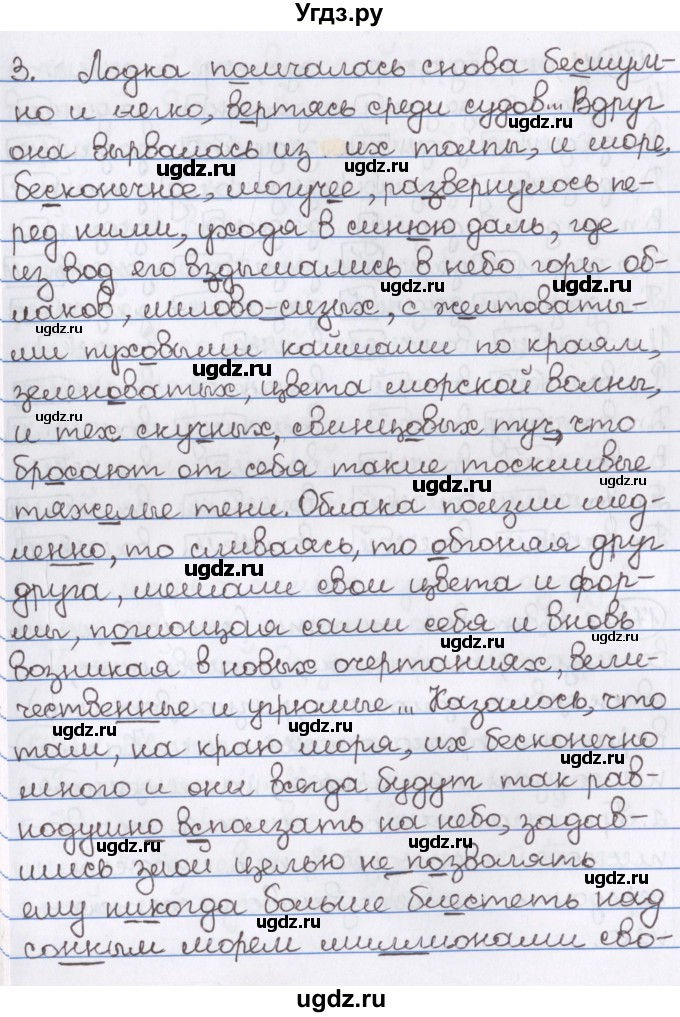 Угдз.ру
3. Лодка помчалась снова бесшум-
но и легко, вертясь среди судов... Вдруг
она вырвалась из их толпы, и море,
бесконечное, могучее, развернулось пе-
ред ними, уходя в синюю даль, где
из вод его вздымались в небо горы об-
лаков, лилово-сизых, с желтоваты-
ми пуховыми каймами по краям,
зеленоватых, цвета морской волны,
и тех скучных, свинцовых туч, что
бросают от себя такие тоскливые
тяжелые тени. Облака ползли мед-
ленно, то сливаясь, то обгоняя друг
друга, мешали свои цвета и фор-
мы, поглощая сами себя и вновь
возникая в новых очертаниях, вели-
чественные и угрюмые... Казалось, что
там, на краю моря, их бесконечно
много и они всегда будут так рав-
нодушно всползать на небо, задав-
шись злой целью не позволять
ему никогда больше блестеть над
сонным морем миллионами сво-
ugdz.ru